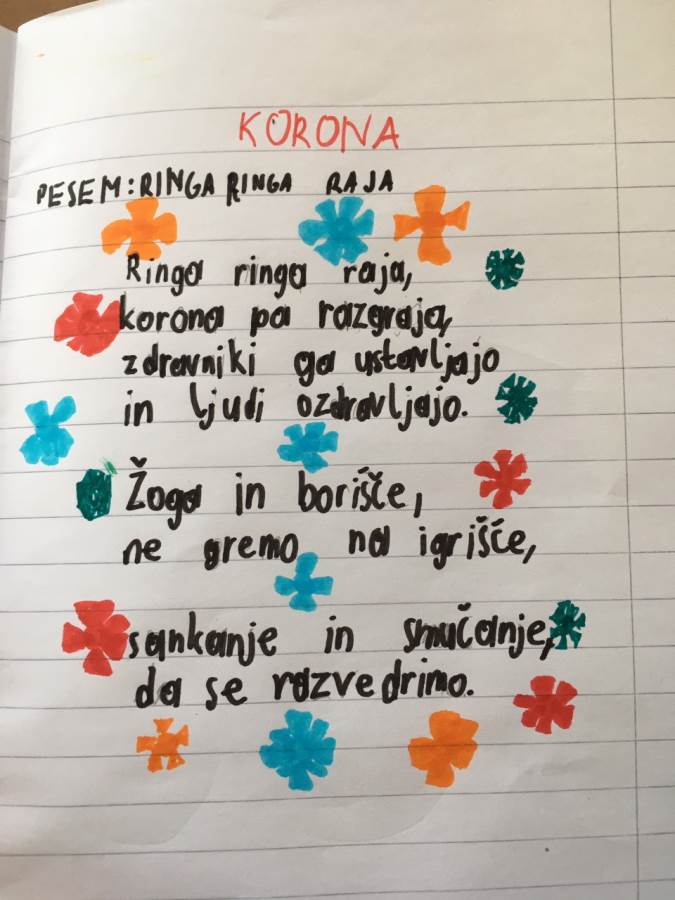 KORONA
PESEM: RINGA RINGA RAJA
Ringa ringa raja,
korona pa razgraja,
zdravniki ga ustavljajo
in ljudi ozdravljajo.
Žoga in borišče,
ne gremo na igrišče,
sankanje in smučanje,
da se razvedrimo.